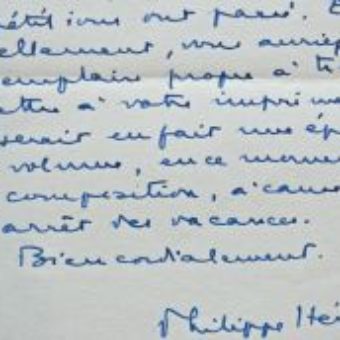 ont passé.
ellement, vous auriez
emplaire propre à ti
ettre à votre imprime
serait en fait une ép
volume, en ce momen
composition, à cause
arrêt des vacances.
Bien cordialement.
Philippe Hé